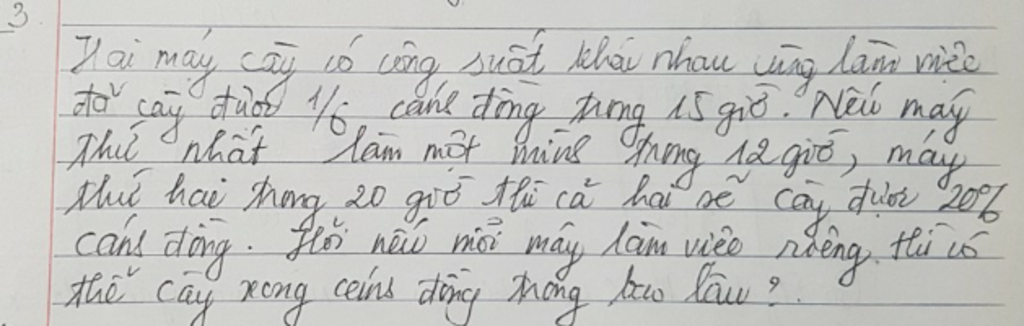 3
Hai máy cày có công suất khác nhau cùng làm việc
đã cày được 1/6 cánh đồng trong 15 giờ. Nếu máy
thứ nhất làm một mình trong 12 giờ, máy
thứ hai trong 20 giờ thì cả hai sẽ cày được 20%
cánh đồng. Hỏi nếu mỗi máy làm việc riêng thì có
thể cày xong cánh đồng trong bao lâu?